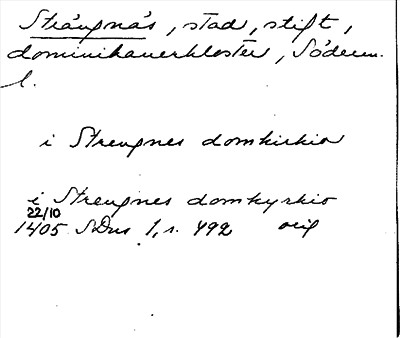 Strängnäs, stad, stift,
dominikanerkloster, Söderm.
l.
i Strengnes domkirkio
i Strengnes domkyrkio
22/10
1405 SDns 1, s. 492 orig